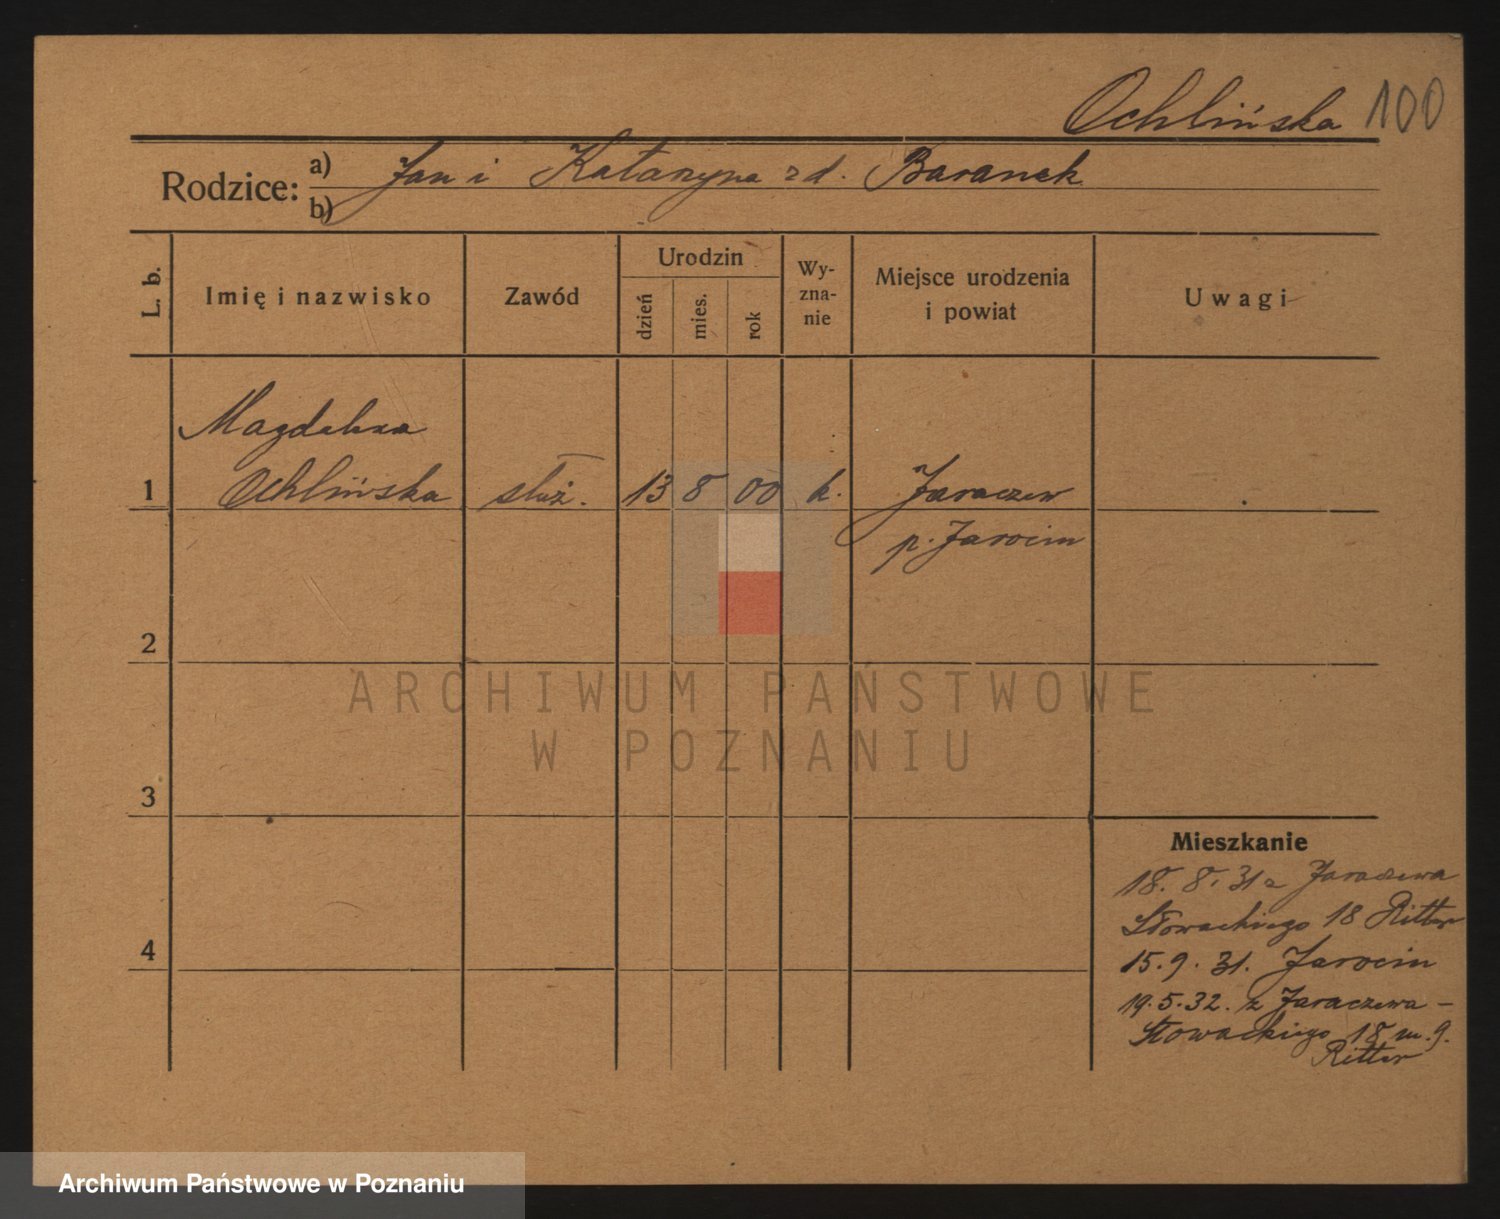 Ochlińska 100
Rodzice: a) Jan i Katarzyna zd. Baranek
b)
L. b. Imię i nazwisko Zawód Urodzin dzień mies. rok Wy-zna-nie Miejsce urodzenia i powiat Uwagi
Magdalena
1 Ochlińska służ. 13 8 00 k. Jaraczew
p. Jarocin
2
3
4
Mieszkanie
18. 8. 31 z Jaraczewa
Słowackiego 18 Ritter
15. 9. 31. Jarocin
19. 5. 32. z Jaraczewa –
Słowackiego 18 m. 9.
Ritter
ARCHIWUM PAŃSTWOWE
W POZNANIU
Archiwum Państwowe w Poznaniu